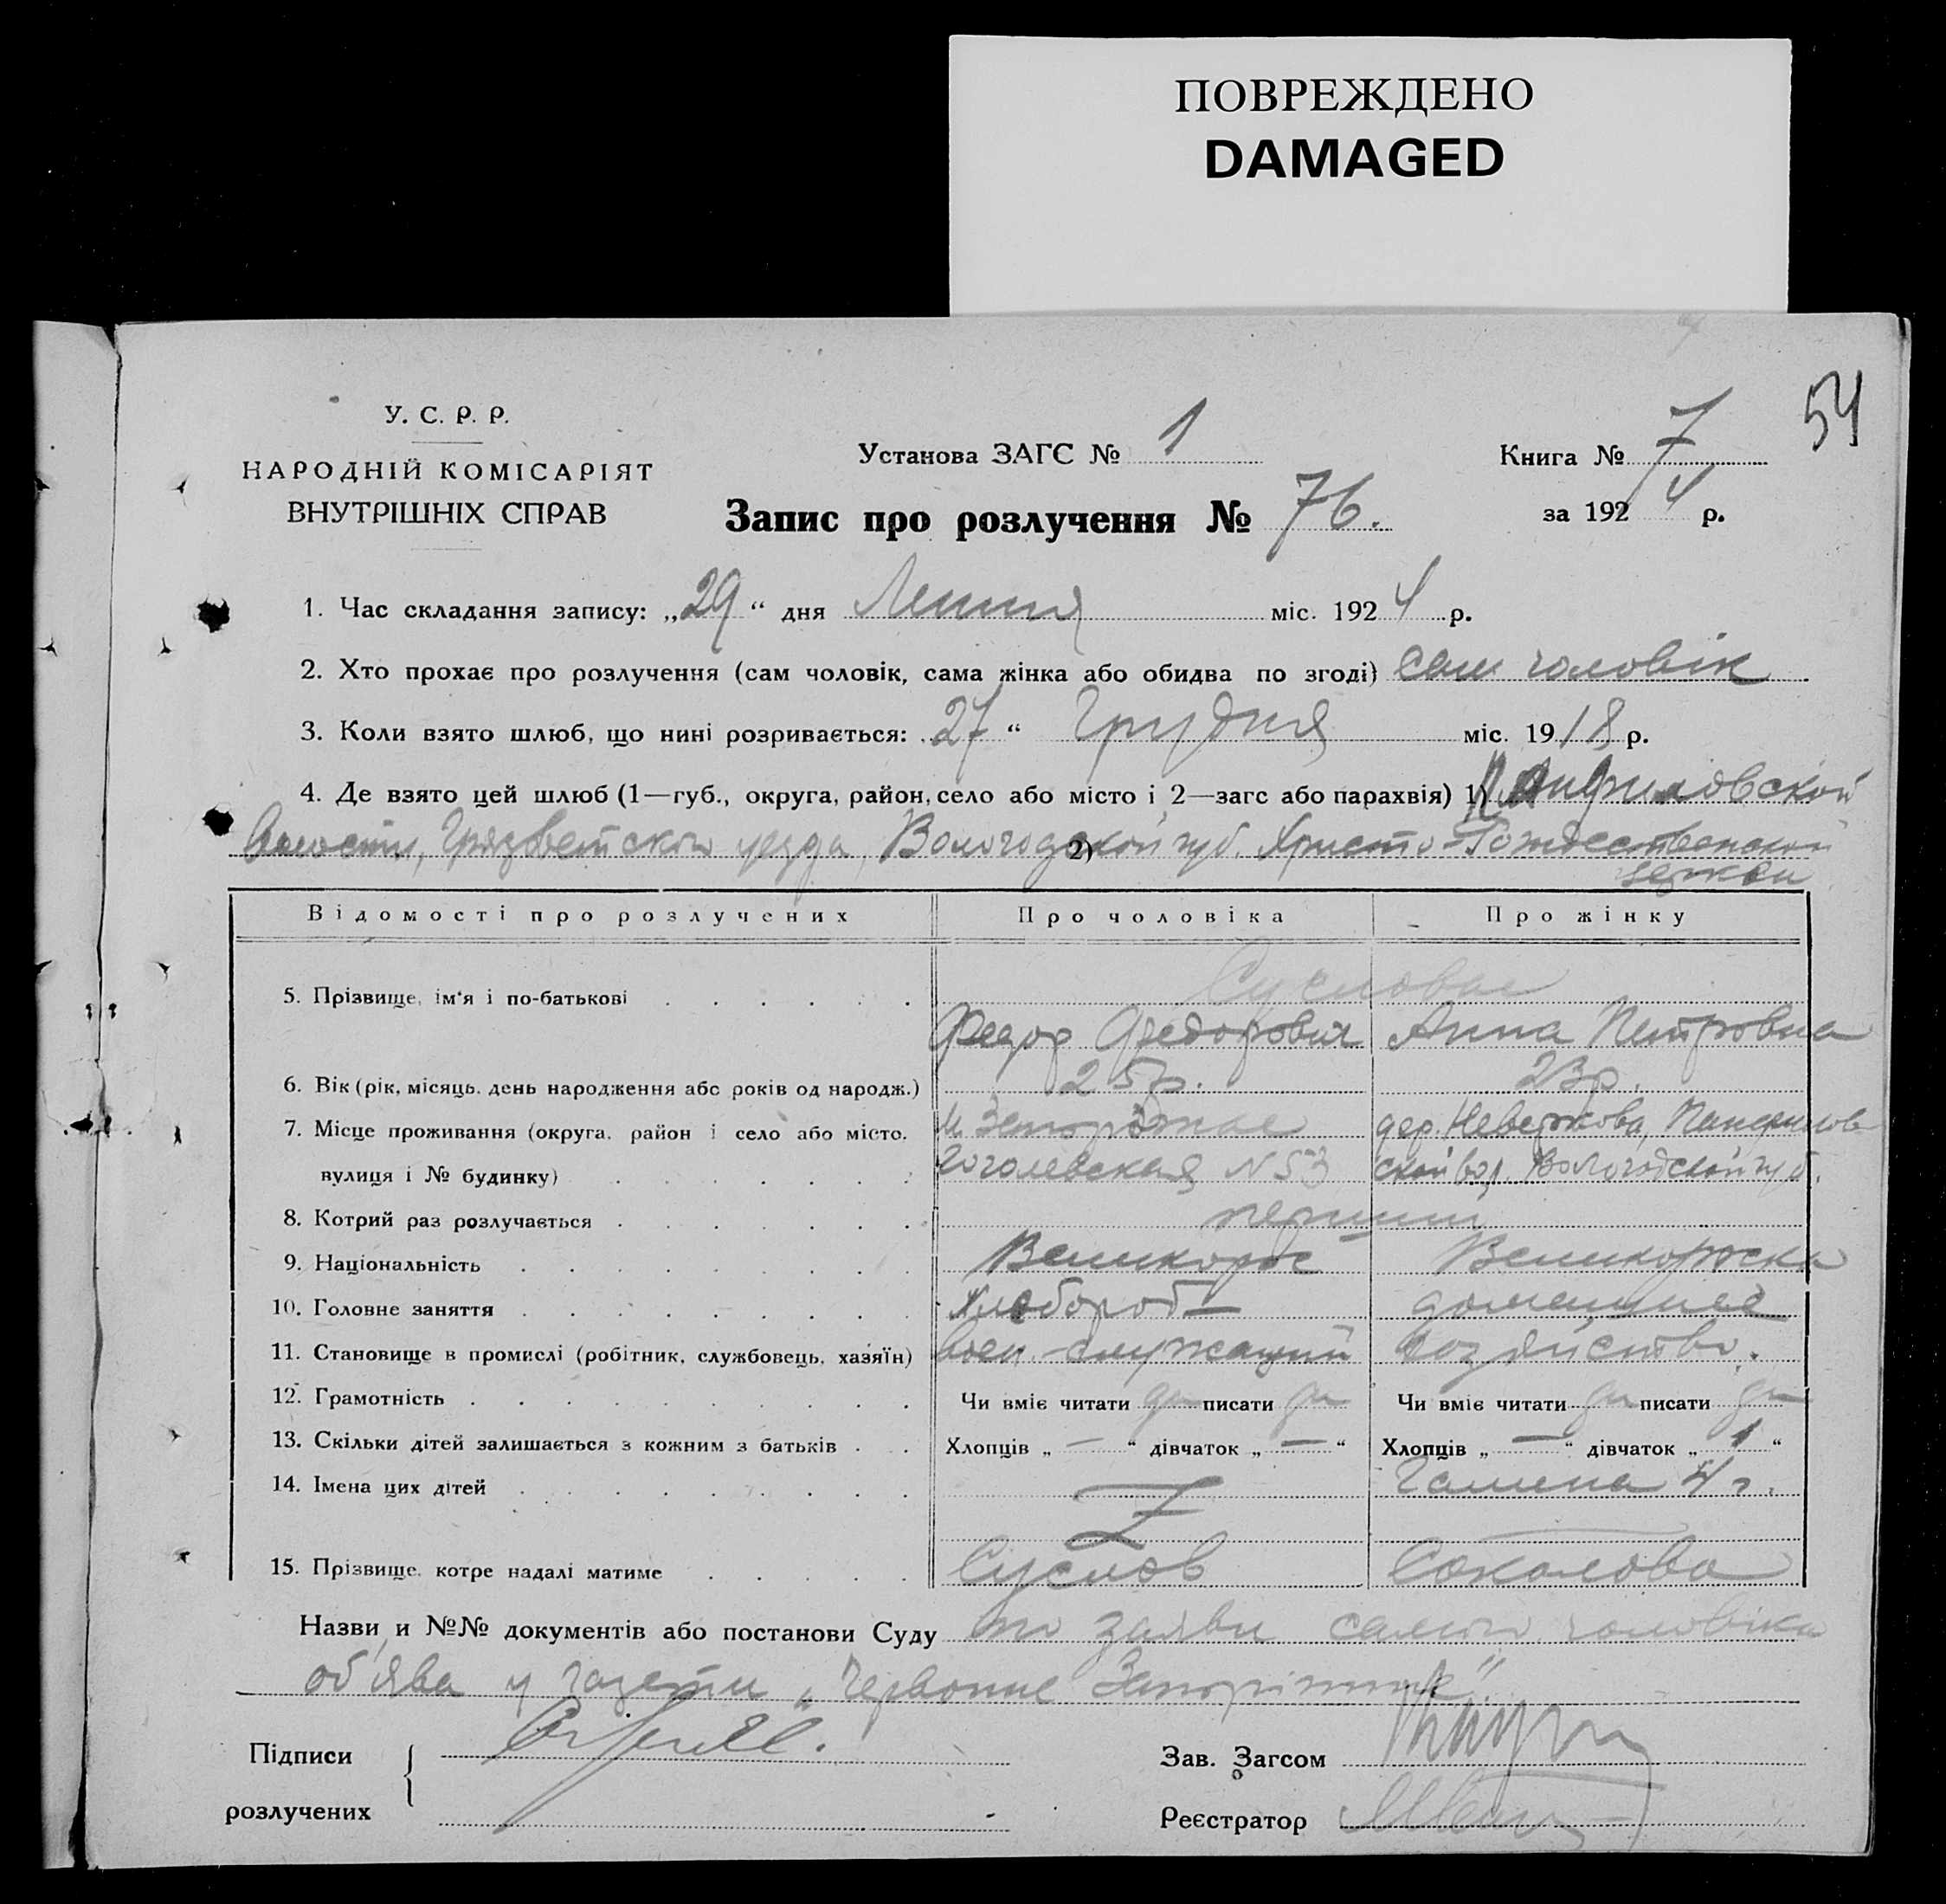 ПОВРЕЖДЕНО
DAMAGED
54
У. С. Р. Р.
НАРОДНІЙ КОМІСАРІЯТ
ВНУТРІШНІХ СПРАВ
Установа ЗАГС № 1
Книга № 7
за 1924 р.
Запис про розлучення № 76.
1. Час складання запису: „29“ дня Липня міс. 1924 р.
2. Хто прохає про розлучення (сам чоловік, сама жінка або обидва по згоді) сам чоловік
3. Коли взято шлюб, що нині розривається: 27 “ Грудня міс. 1918 р.
4. Де взято цей шлюб (1—губ., округа, район, село або місто і 2—загс або парахвія) 1) Панфиловской
волости, Грязоветского уезда, Вологодской губ. 2) Христо-Рождественской
церкви
Відомості про розлучених Про чоловіка Про жінку
5. Прізвище, ім'я і по-батькові Сусловы
Федор Федорович Анна Петровна
6. Вік (рік, місяць, день народження або років од народж.) 25 р. 23 р.
7. Місце проживання (округа, район і село або місто, м. Запорожье дер. Неверкова, Панфилов-
вулиця і № будинку) Гоголевская N 53 ской вол. Вологодской губ.
8. Котрий раз розлучається перший
9. Національність Великорос Великороска
10. Головне заняття Хлебороб— домашнее
11. Становище в промислі (робітник, службовець, хазяїн) воен.-служащий хозяйство.
12. Грамотність Чи вміє читати да писати да Чи вміє читати да писати да
13. Скільки дітей залишається з кожним з батьків Хлопців „ — “ дівчаток „ — “ Хлопців „ — “ дівчаток „ 1 “
14. Імена цих дітей 4 г.
15. Прізвище, котре надалі матиме Суслов Соколова
Назви и №№ документів або постанови Суду по заяви самого чоловіка
об'ява у газети „Червоне Запоріжжя“.
Підписи
розлучених
Зав. Загсом
Реєстратор